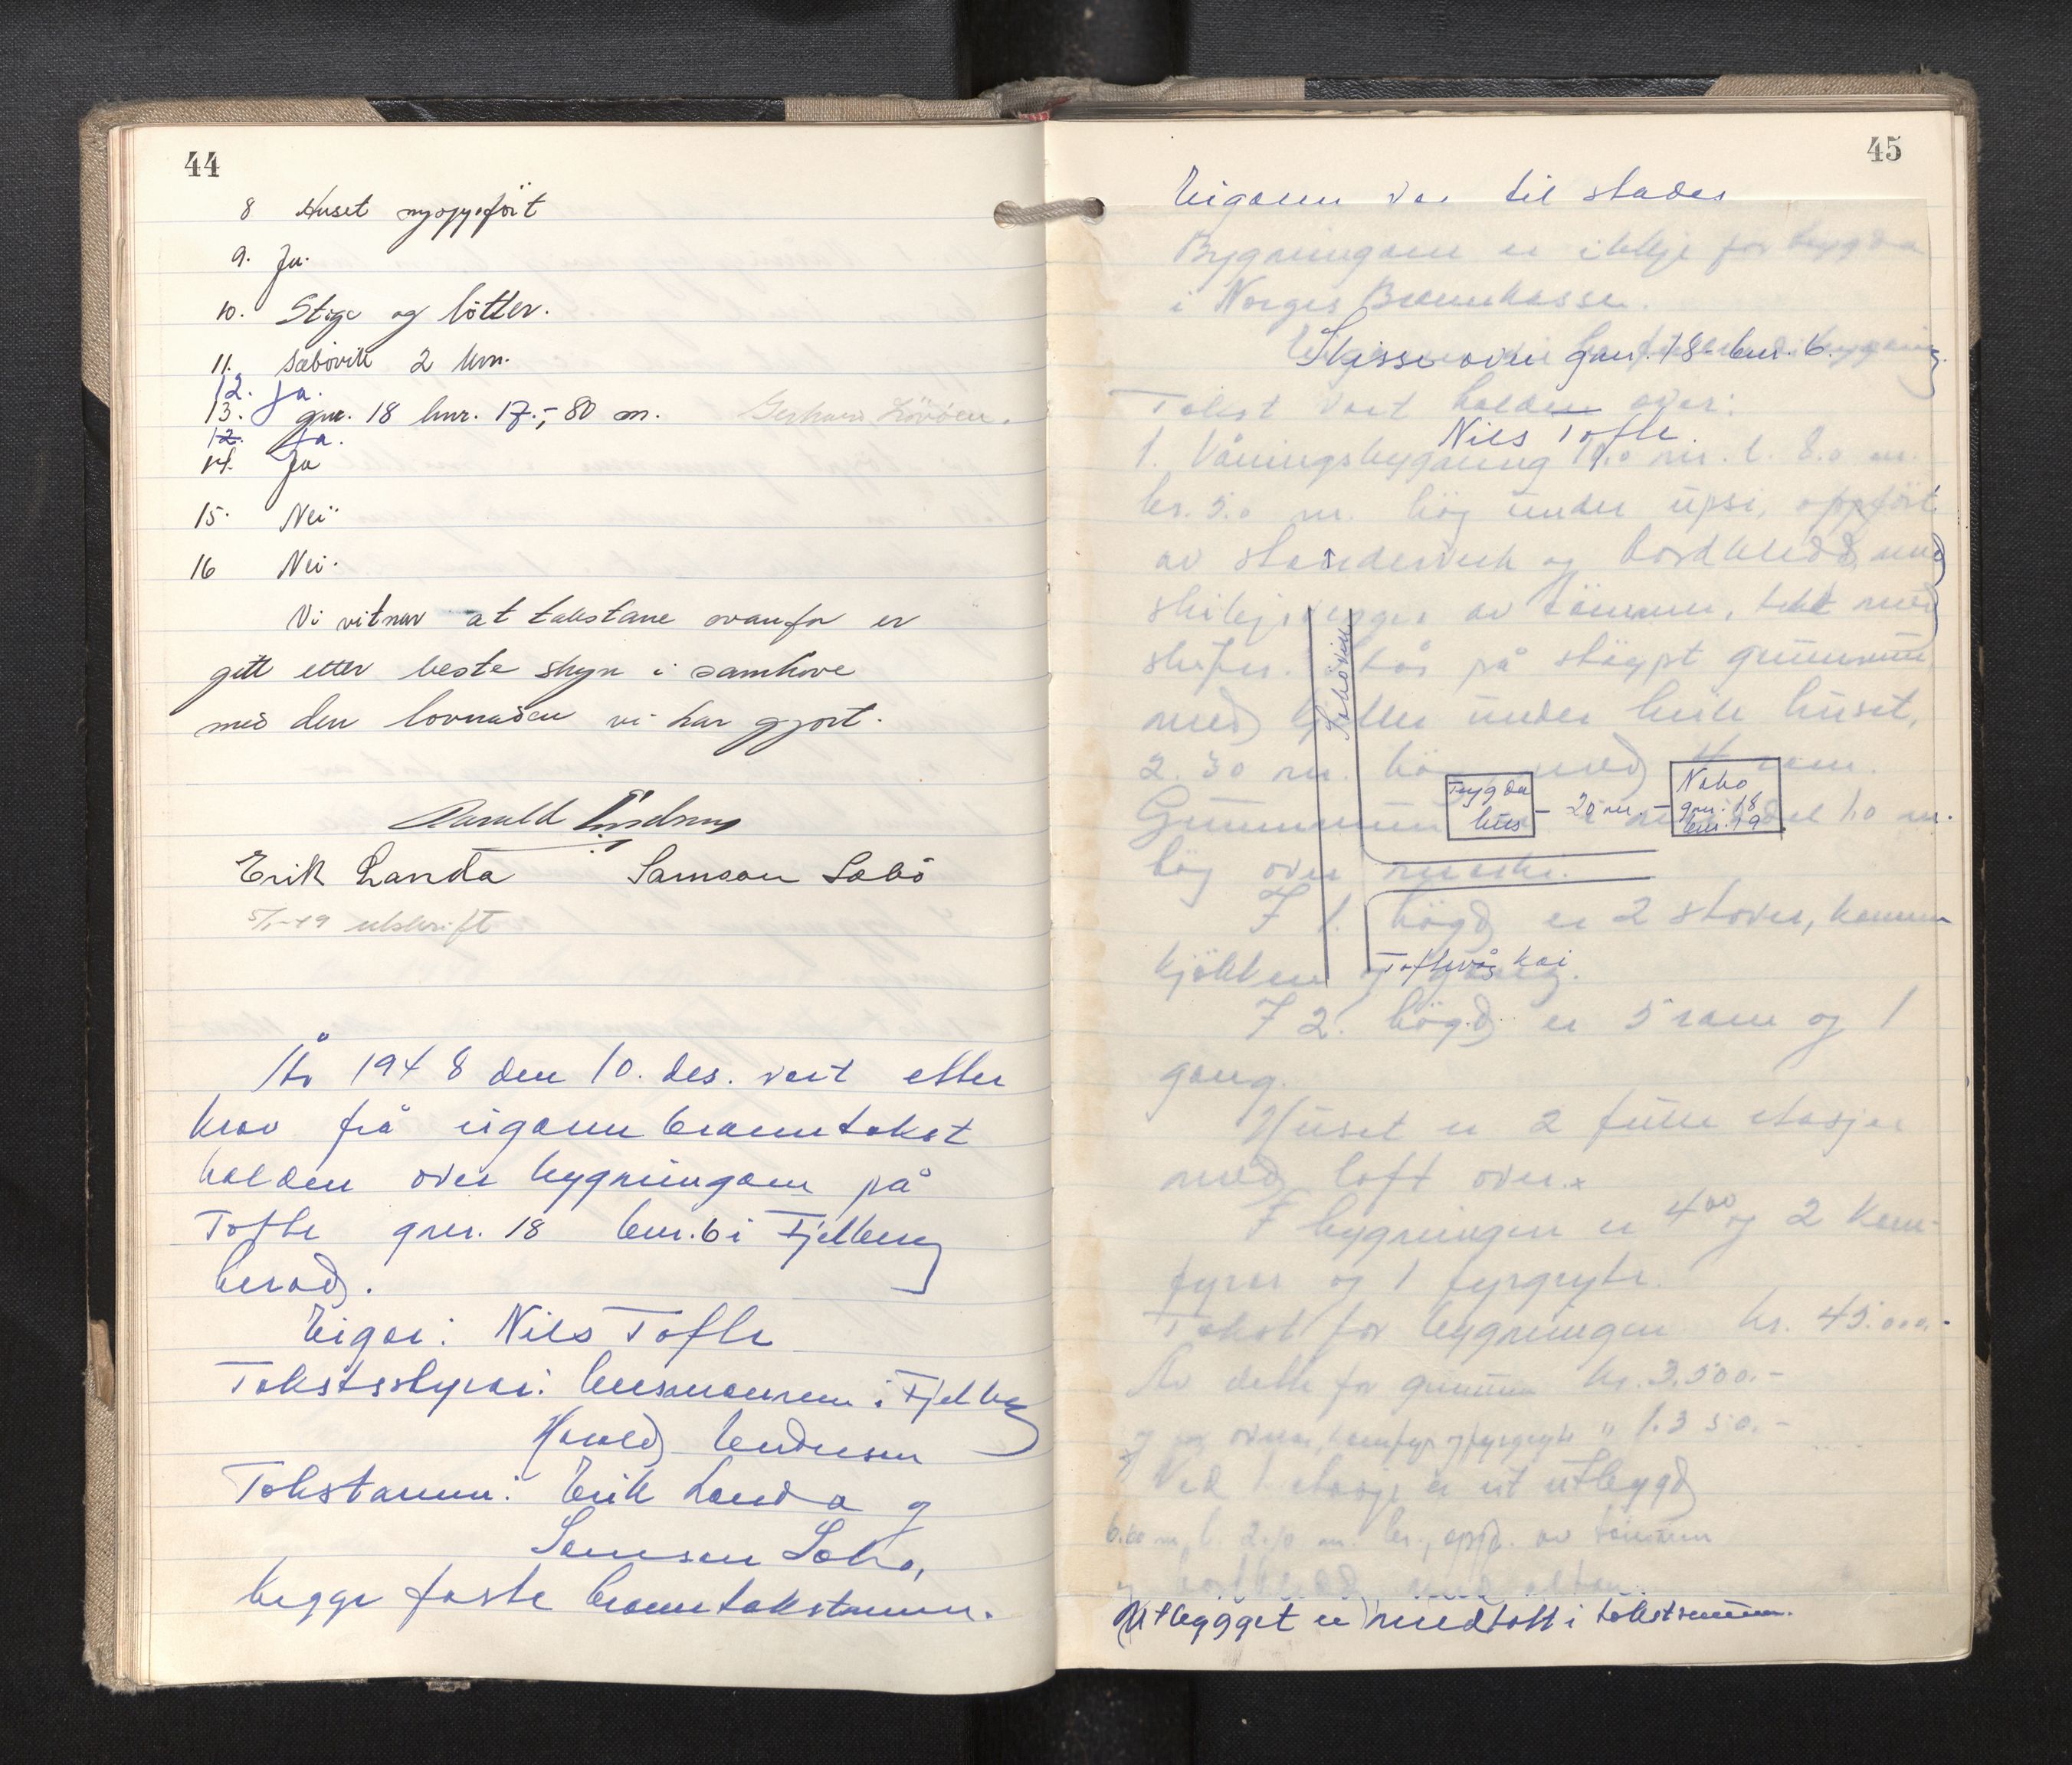 44
8 Huset nyoppført
9. Ja.
10. Stige og bötter.
11. Sæbövik 2 km.
12. Ja.
13. gnr. 18 bnr. 17.-, 80 m.
12. Ja.
14. Ja
15. Nei
16 Nei.
Vi vitnar at takstane ovanfor er
gitt etter beste skyn i samhøve
med den lovnaden vi har gjort.
Erik Landa Samson Sæbö
5/1-49 utskrift
År 1948 den 10. des. vart etter
krav frå eigaren branntakst
halden over bygningane på
Tofte gnr. 18 bnr. 6 i Fjelberg
herad.
Eigar: Nils Tofte
Takststyrar: lensmannen i Fjelberg
Harald Endresen
Takstmenn: Erik Landa og
Samson Sæbø,
begge faste branntakstmenn.
45
Eigaren var til stades
Bygningane er ikkje før trygda
i Norges Brannkasse.
Skisse over gnr. 18 bnr. 6.
Takst vart halden over:
Nils Tofte.
1. Våningsbygning 10.0 m. l. 8.0 m.
br. 5.0 m. høg under upsi, oppført
av stenderverk og bordkledd, med
skiljevegger av tömmer, tekt med
skifer. Står på støypt grunnmur,
med kjeller under heile huset,
2.30 m. høg med 4 rom.
Grunnmuren 1.0 m.
høg over marki.
Sæbövik
Trygda
hus
- 20 m. -
Nabo
gnr. 18
bnr. 19
I 1. høgd er 2 stover, kammer
kjökken og gang.
Toftevåg kai
I 2. høgd er 5 rom og 1
gang.
Huset er 2 fulle etasjer
med loft over.
I bygningen er 4 ovn og 2 kom-
fyrar og 1 fyrgryte.
Takst for bygningen kr. 45.000.-
Av dette for grunnmur kr. 3.500.-
og for ovnar, komfyr og fyrgryte " 1.350.-
Ved 1 etasje er eit utbygg
6.60 m. l. 2.10 m. br., oppf. av tömmer
og bordkledd med altan.
Utbygget er medtatt i takstsummen.